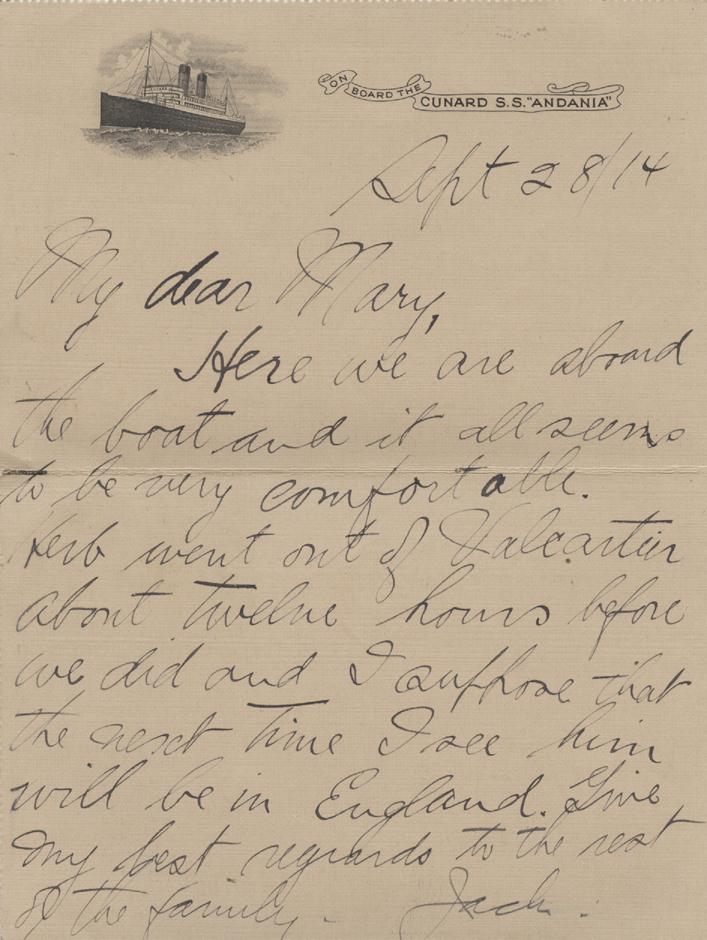 ON BOARD THE CUNARD S.S. "ANDANIA"
Sept 28/14
My dear Mary,
Here we are aboard
the boat and it all seems
to be very comfortable.
Herb went out of Valcartier
about twelve hours before
we did and I suppose that
the next time I see him
will be in England. Give
my best regards to the rest
of the family. Jack.